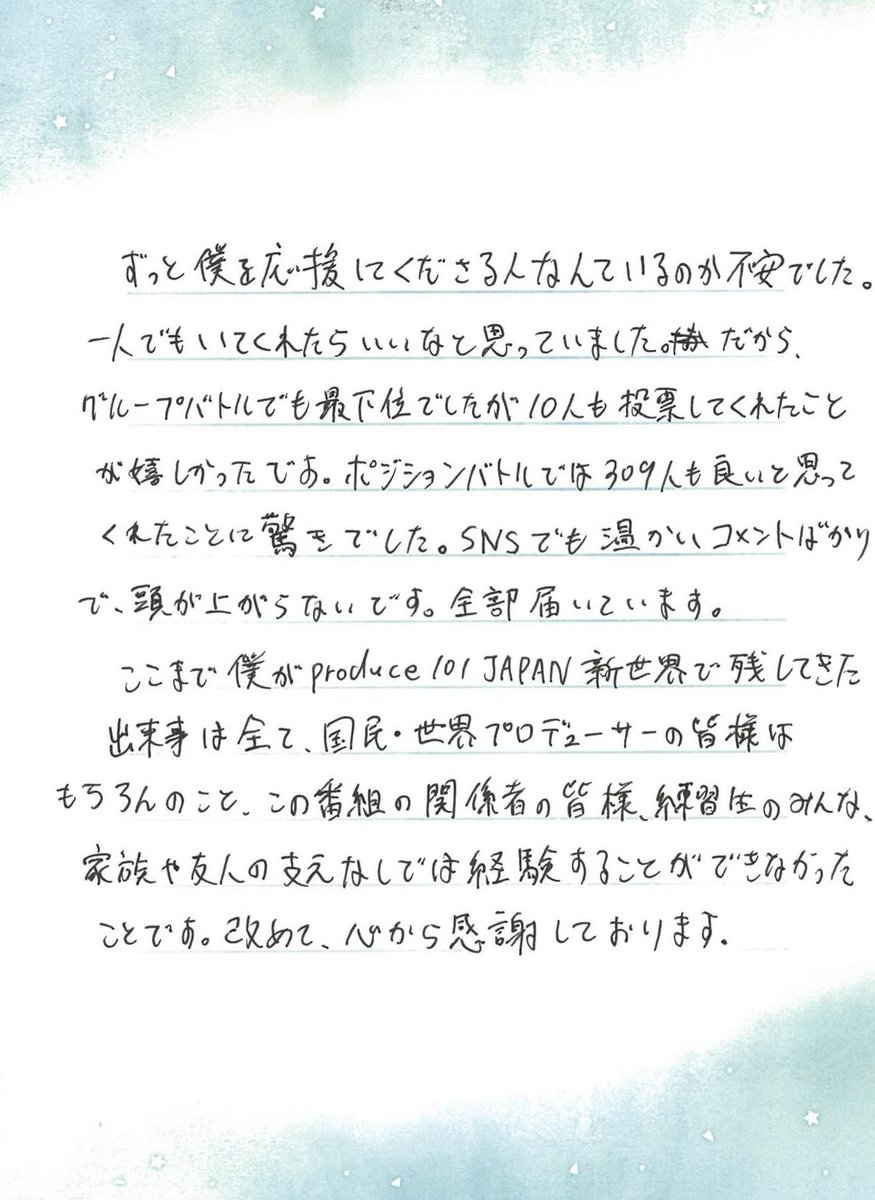 ずっと僕を応援してくださる人なんているのか不安でした。
一人でもいてくれたらいいなと思っていました。だから、
グループバトルでも最下位でしたが10人も投票してくれたこと
が嬉しかったです。ポジションバトルでは309人も良いと思って
くれたことに驚きでした。SNSでも温かいコメントばかり
で、頭が上がらないです。全部届いています。
ここまで僕がproduce 101 JAPAN 新世界で残してきた
出来事は全て、国民・世界プロデューサーの皆様は
もちろんのこと、この番組の関係者の皆様、練習生のみんな、
家族や友人の支えなしでは経験することができなかった
ことです。改めて、心から感謝しております。